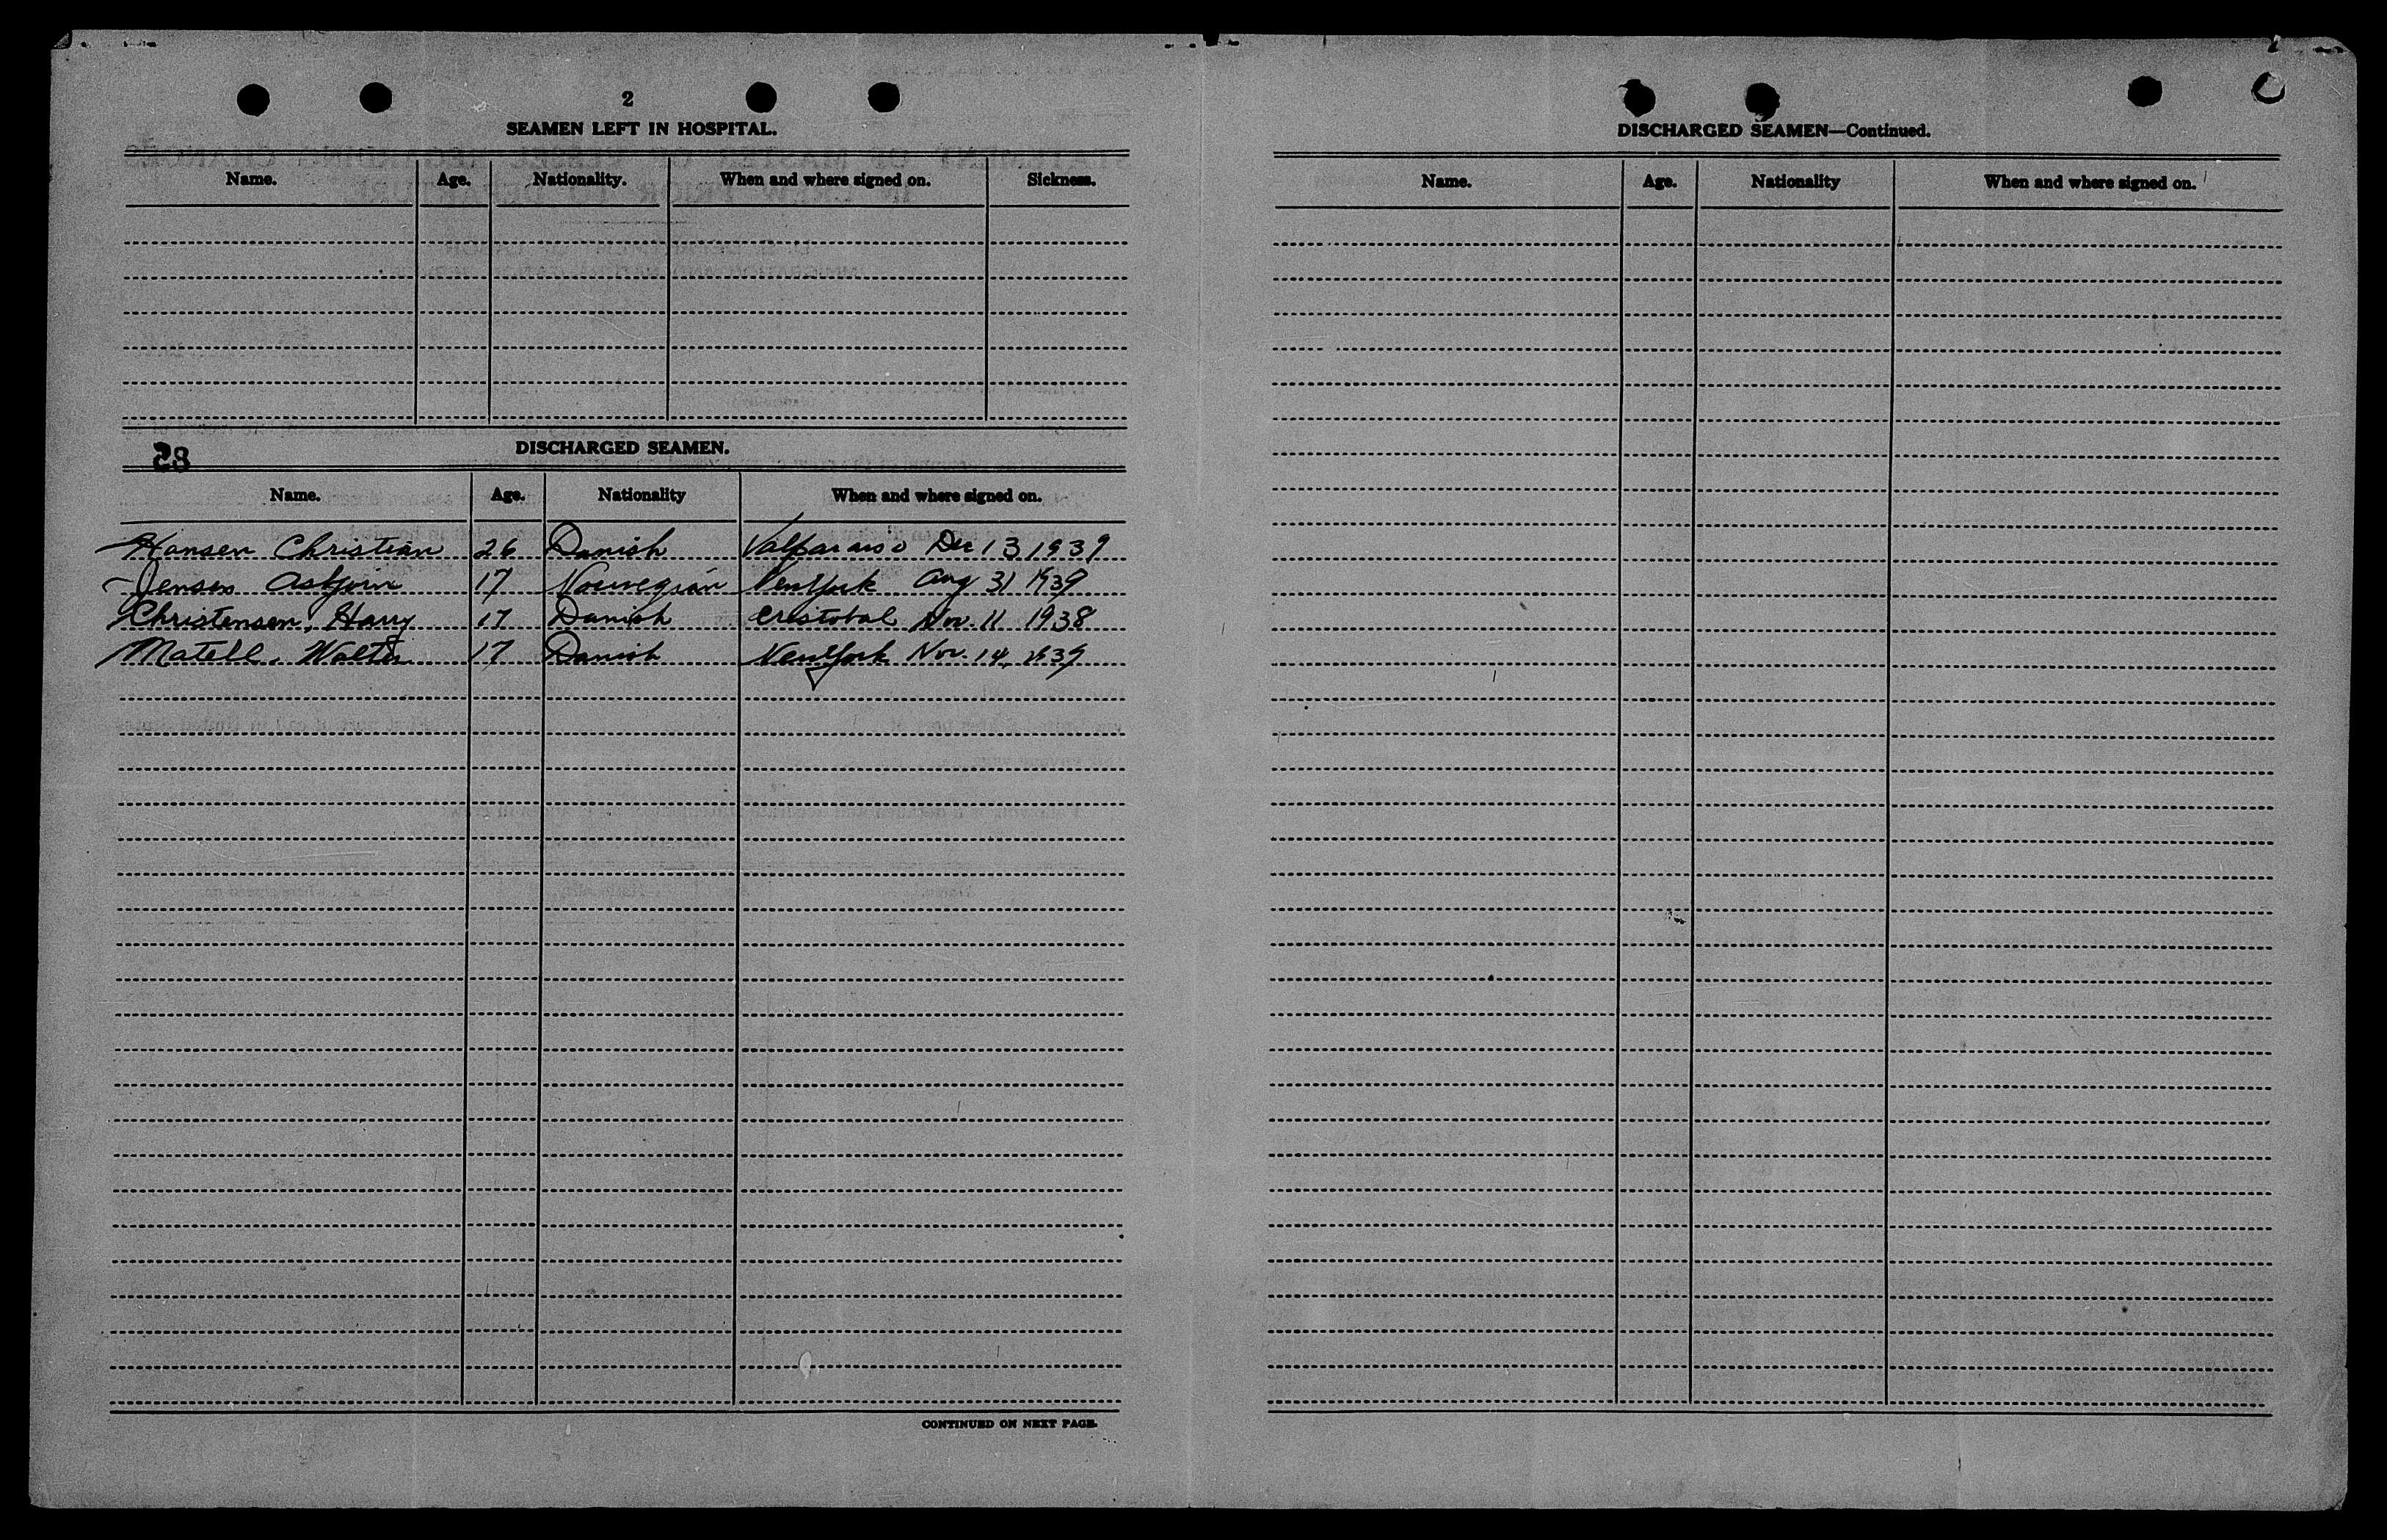 2
SEAMEN LEFT IN HOSPITAL.
Name. Age. Nationality. When and where signed on. Sickness.
28
DISCHARGED SEAMEN.
Name. Age. Nationality When and where signed on.
Hansen Christian 26 Danish Valparaiso Dec 13 1939
Jensen Asbjorn 17 Norwegian New York Aug 31 1939
Christensen, Harry 17 Danish Cristobal Nov. 11 1938
Matell, Walter 17 Danish New York Nov. 14, 1939
CONTINUED ON NEXT PAGE.
DISCHARGED SEAMEN—Continued.
Name. Age. Nationality When and where signed on.